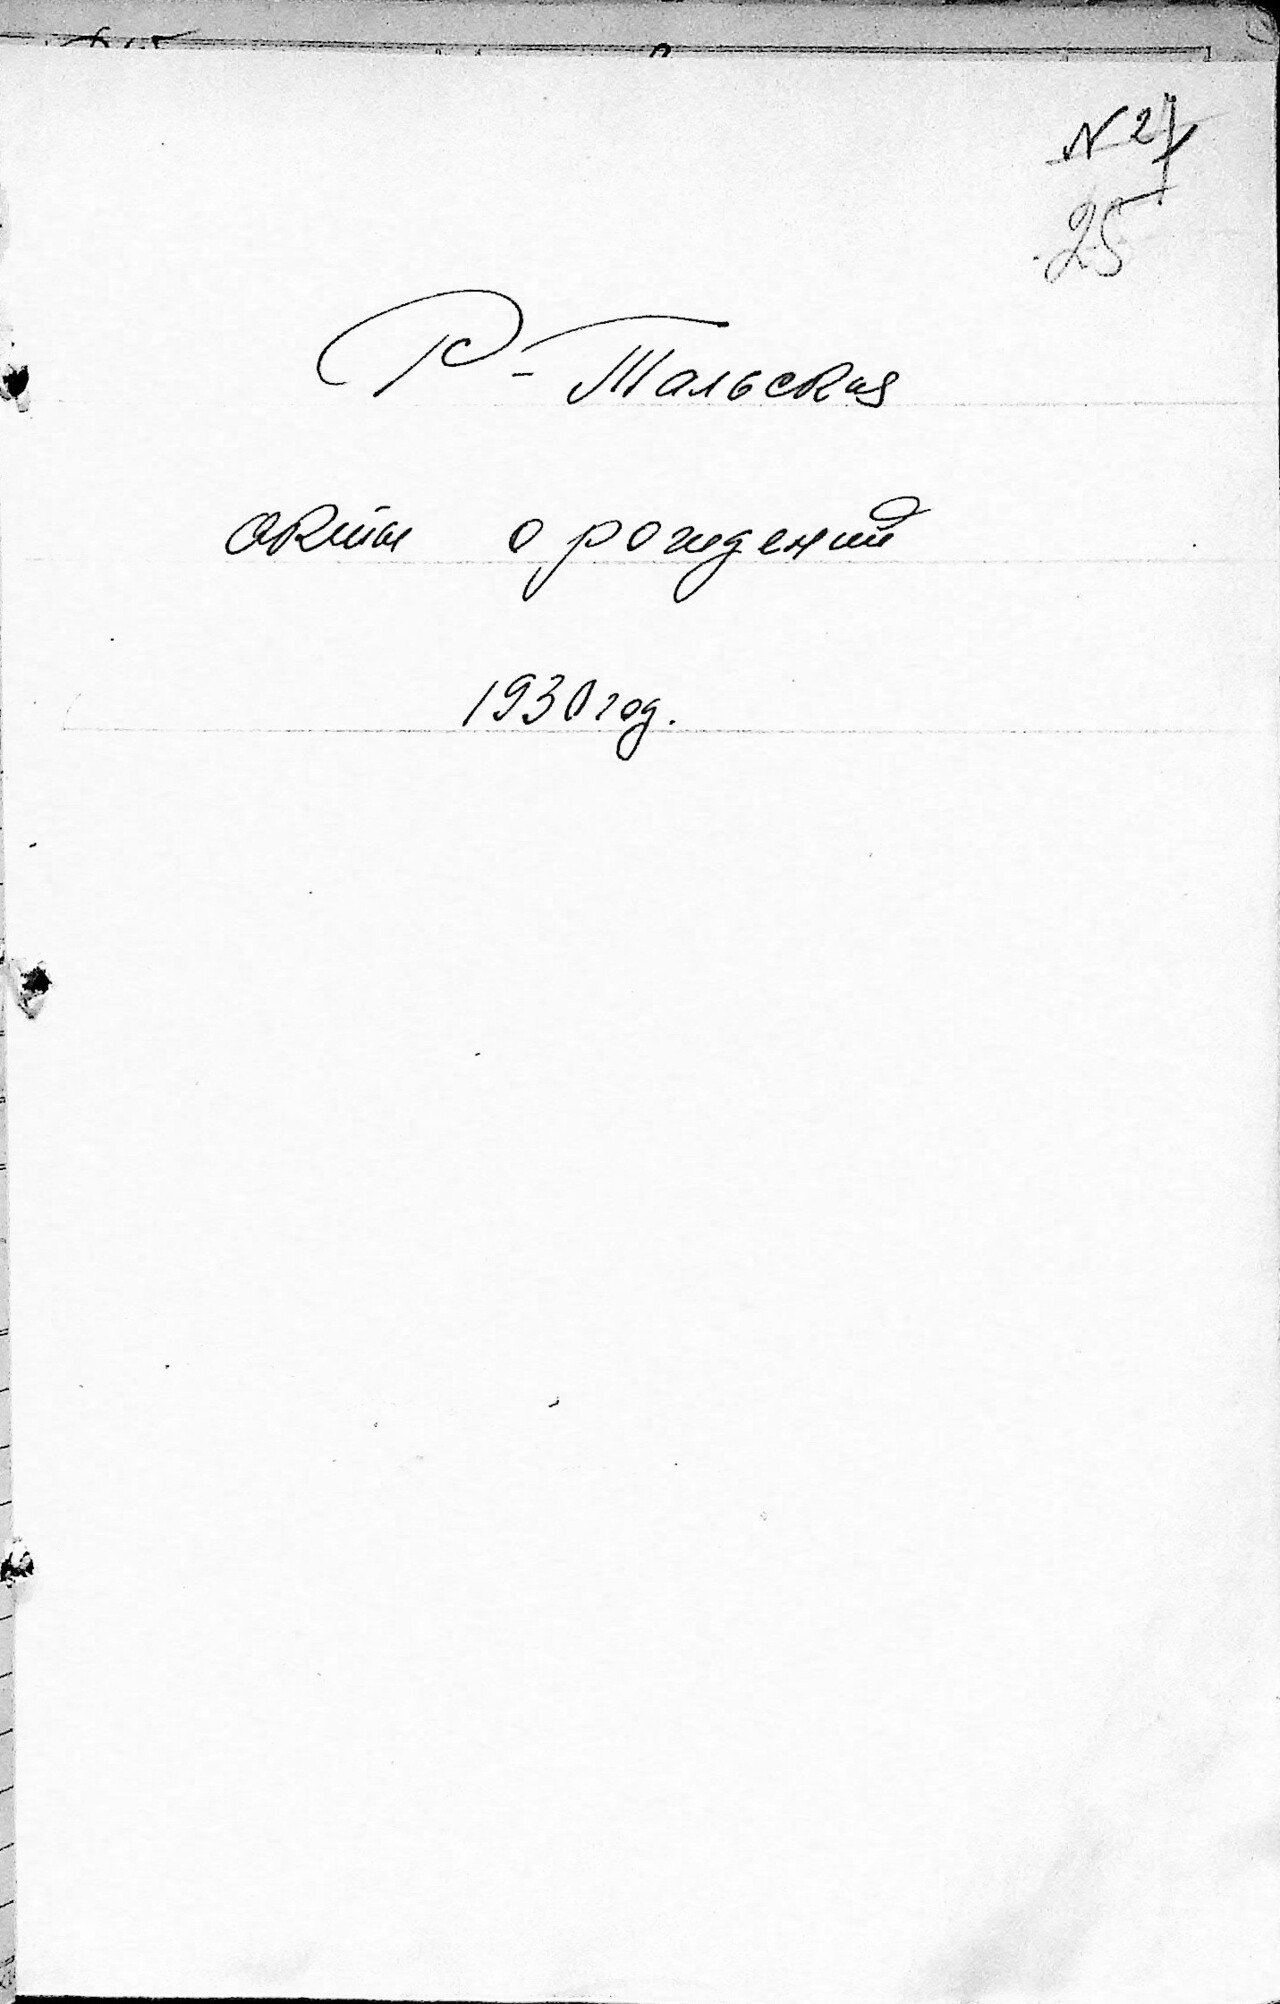 N 27
25
Р-Тальская
акты о рождений
1930 год.